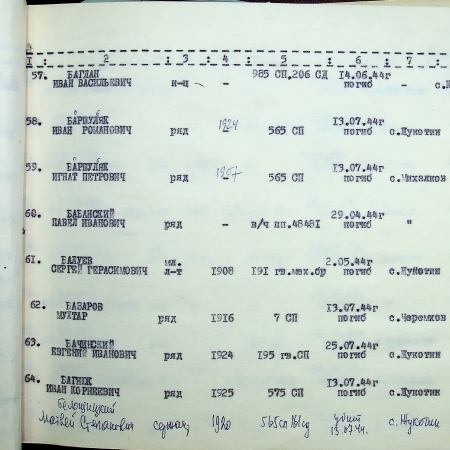 1 : 2 : 3 : 4 : 5 : 6 : 7 :
57. БАГЛАН 985 СП,206 СД 14.06.44г
ИВАН ВАСИЛЬЕВИЧ к-ц - погиб -
58. БАРШУЛЯК 1924 13.07.44г
ИВАН РОМАНОВИЧ ряд - 565 СП погиб с.Жукотин
59. БАРШУЛЯК 1907 13.07.44г
ИГНАТ ПЕТРОВИЧ ряд - 565 СП погиб с.Михалков
60. БАБАНСКИЙ 29.04.44г
ПАВЕЛ ИВАНОВИЧ ряд - в/ч пп.48481 погиб "
61. БАЛУЕВ мл. 2.05.44г
СЕРГЕЙ ГЕРАСИМОВИЧ л-т 1908 191 гв.мех.бр погиб с.Жукотин
62. БАЗАРОВ 13.07.44г
МУХТАР ряд 1916 7 СП погиб с.Черемхов
63. БАЧИНСКИЙ 25.07.44г
ЕВГЕНИЙ ИВАНОВИЧ ряд 1924 195 гв.СП погиб с.Жукотин
64. БАГНЮК 13.07.44г
ИВАН КОРНЕЕВИЧ ряд 1925 575 СП погиб с.Жукотин
Белошицкий
Матвей Степанович 1920 565сп 161сд убит с.Жукотин
13.07.44.